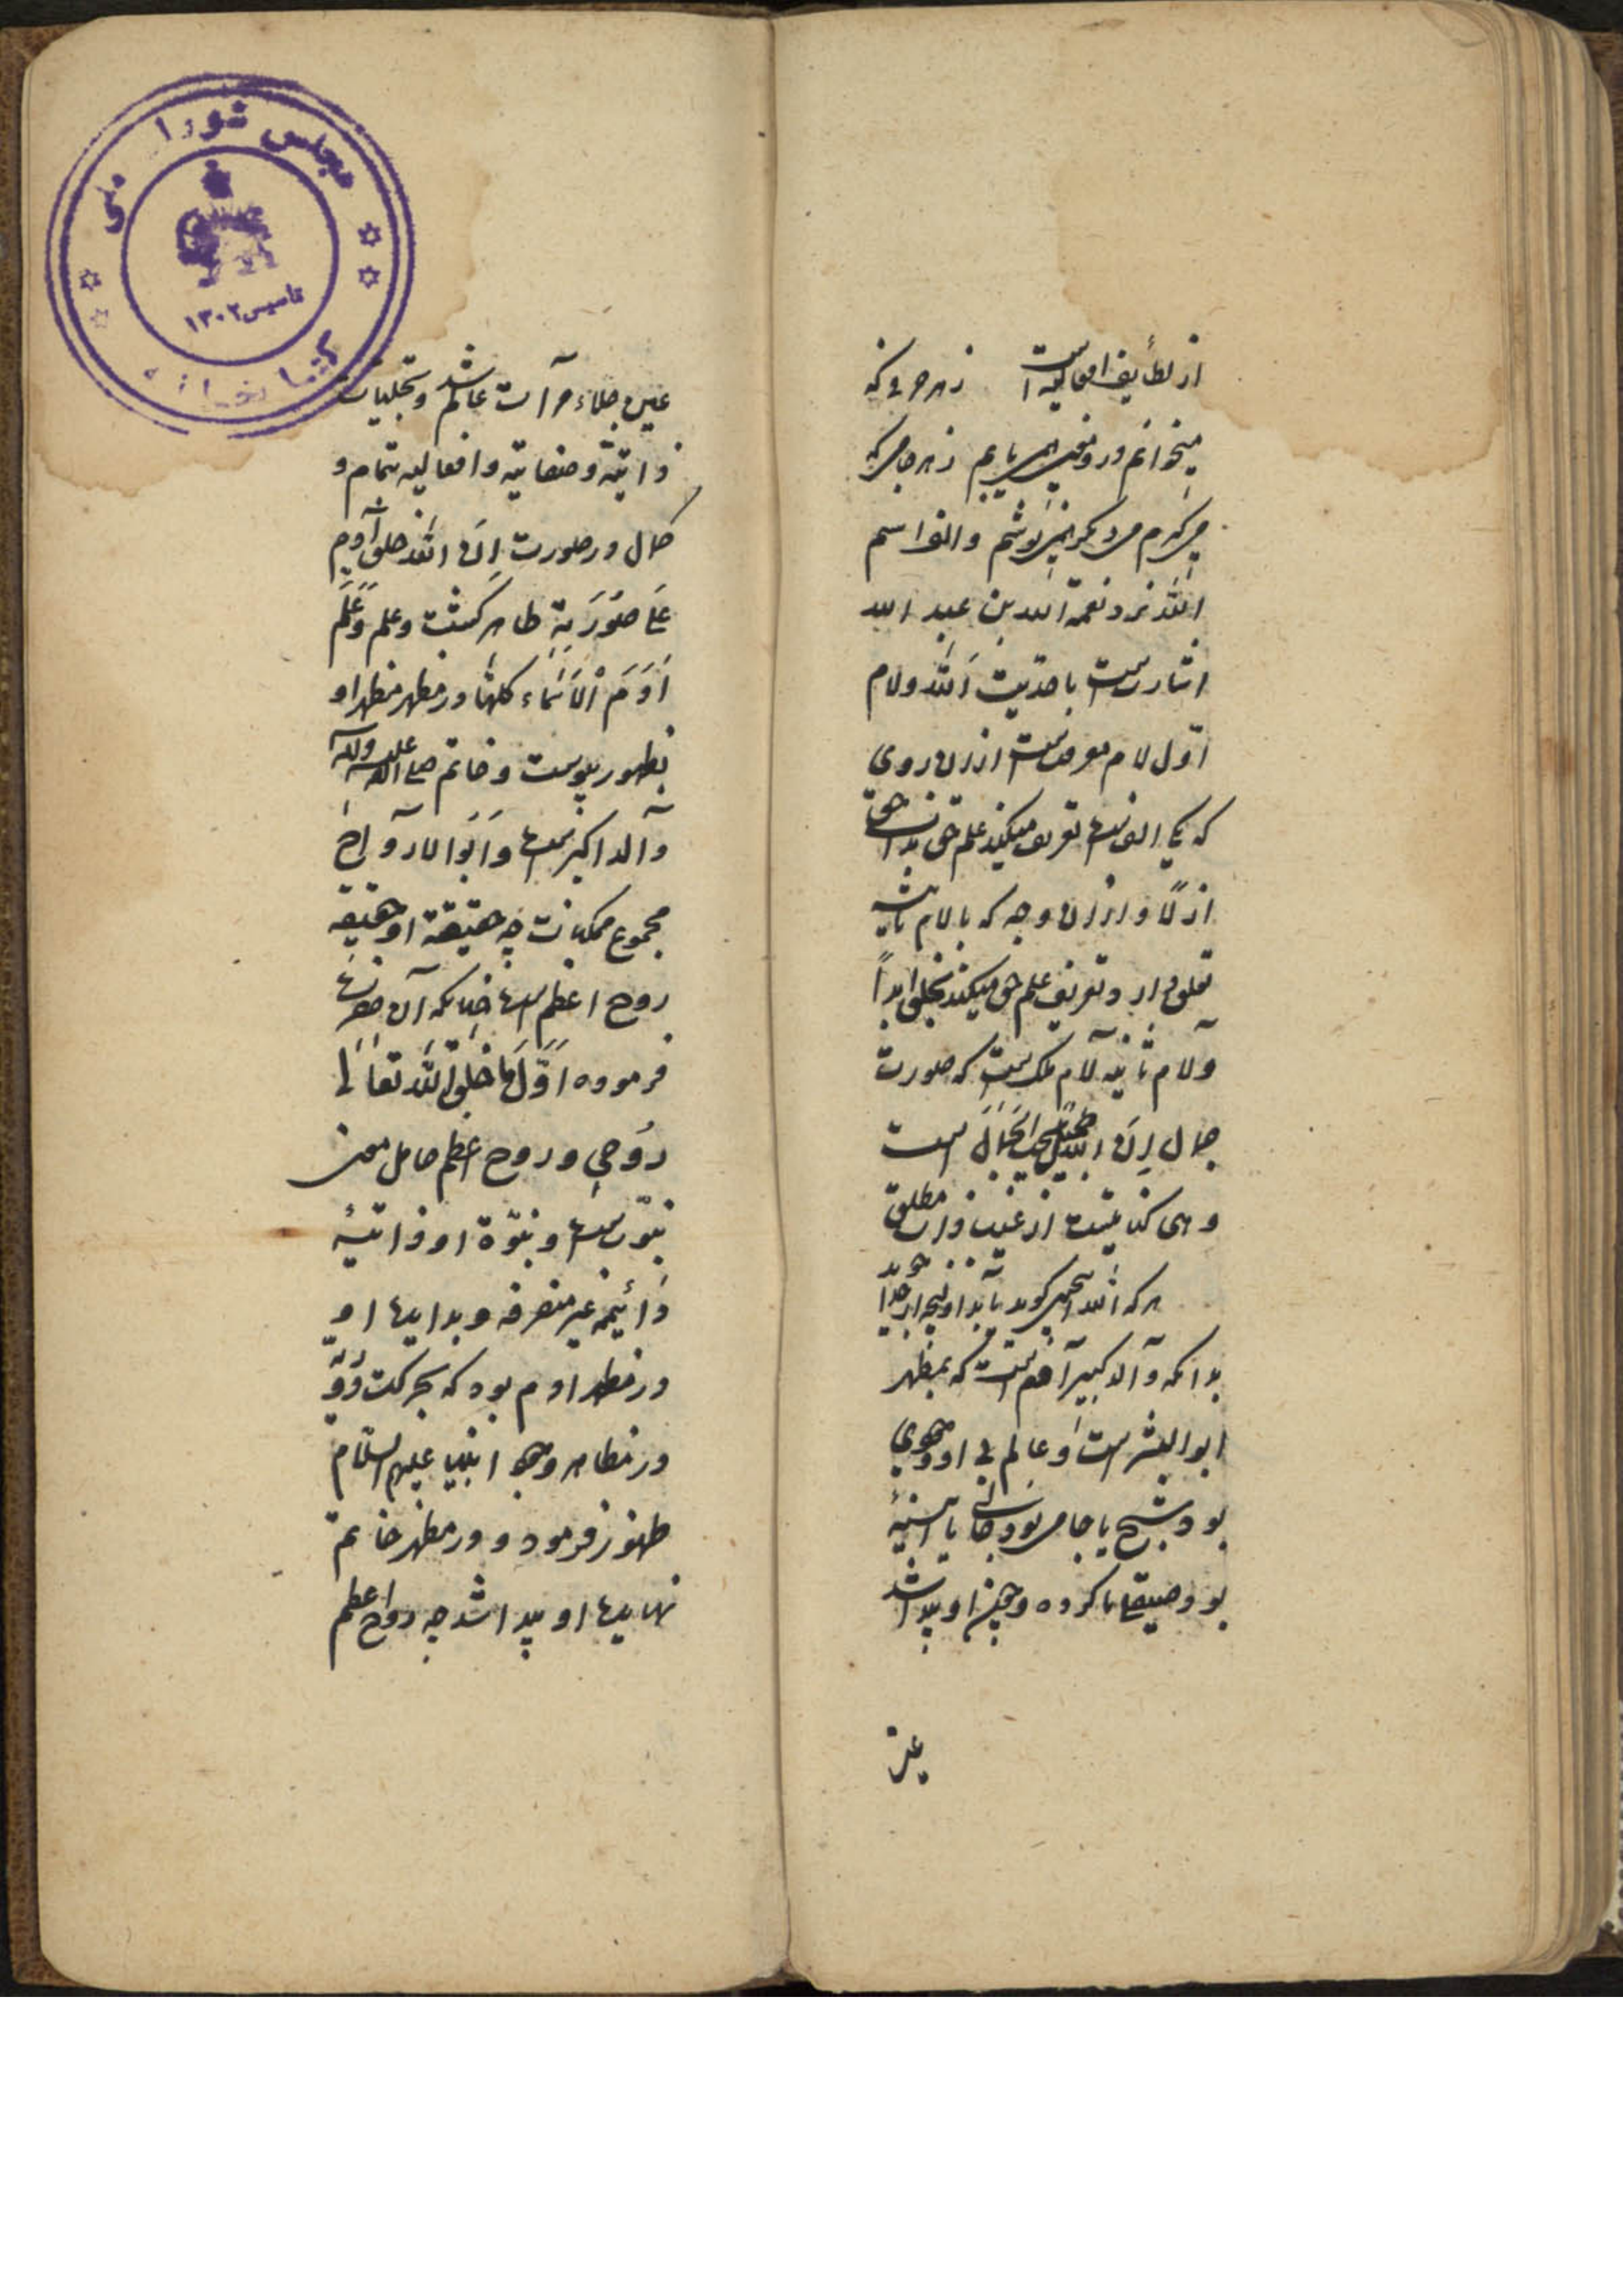 از لطایف افعالیه است ز هر حرفی که
میخوانم درو معنی همی یابم ز هر جامی که
می گیرم می دیگر همی نوشم و الف اسم
الله نزد نعمة الله بن عبد الله
اشارتست باحدیت الله و لام
اول لام معرفتست ازان روی
که یکی الفست تعریف میکند علم حق بذات حق
ازلا و ازان وجه که با لام ثانیه
تعلق دارد تعریف علم حق میکند بخلق ابدا
ولام ثانیه لام ملکست که صورت
جمال ان الله جمیل یحب الجمال است
وهی کنایتست از غیب ذات مطلق
هر که الله این چنین گوید یابد او هر چه از خدا جوید
بدانکه والد کبیر آدمست که بمظهر
ابوالبشرست و عالم بی او وجودی
بود شبح یا جامی بود خالی یا آینهٔ
بود صیقل نا کرده و چون او پیدا شد
عین
عین جلاء مرآت عالم شد و تجلیات
ذاتیة و صفاتیه و افعالیه تمام و
کمال در صورت ان الله خلق آدم
على صورته ظاهر گشت و علم وعلم
آدم الاسماء کلها در مظهر مظهر او
بظهور پیوست و خاتم صلی الله علیه وآله
والد اکبرست و ابوالارواح
مجموع ممکنات چه حقیقة او حقیقه
روح اعظم است چنانکه آن حضرت
فرموده اول ما خلق الله تعالی
روحی و روح اعظم حامل معنی
نبوتست و نبوة او ذاتیه
دائیمه غیر منصرفه و بدایت او
در مظهر آدم بود که بحرکت دوریه
در مظاهر وجود انبیا علیهم السلام
ظهور فرمود و در مظهر خاتم
نهایت او پیدا شد چه روح اعظم
مجلس شورای ملی
تاسیس ۱۳۰۲
کتابخانه